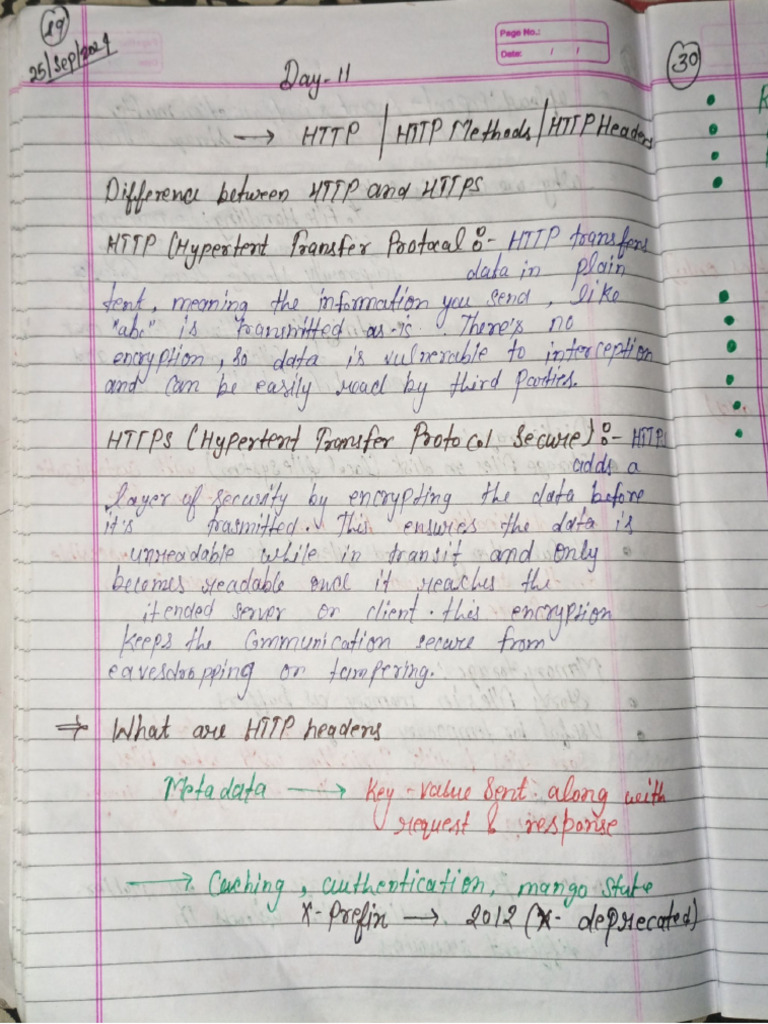 29
25/Sep/2024
Page No.:
Date: / /
30
Day-11
→ HTTP | HTTP Methods | HTTP Headers
Difference between HTTP and HTTPS
HTTP (Hypertent Transfer Protocal :- HTTP transfers
data in plain
tent, meaning the information you send, like
"abc" is transmitted as-is. There's no
encryption, so data is vulnerable to interception
and can be easily read by third parties.
HTTPS (Hypertent Transfer Protocol Secure) :- HTTPS
adds a
layer of security by encrypting the data before
it's trasmitted. This ensures the data is
unreadable while in transit and only
becomes readable onac it reaches the
itended server or client. this encryption
keeps the Communication secure from
eavesdropping or tampering.
⇒ What are HTTP headers
Metadata → Key-value sent along with
request & response
→ Caching, authentication, mango state
X-Prefix → 2012 (X- deprecated)